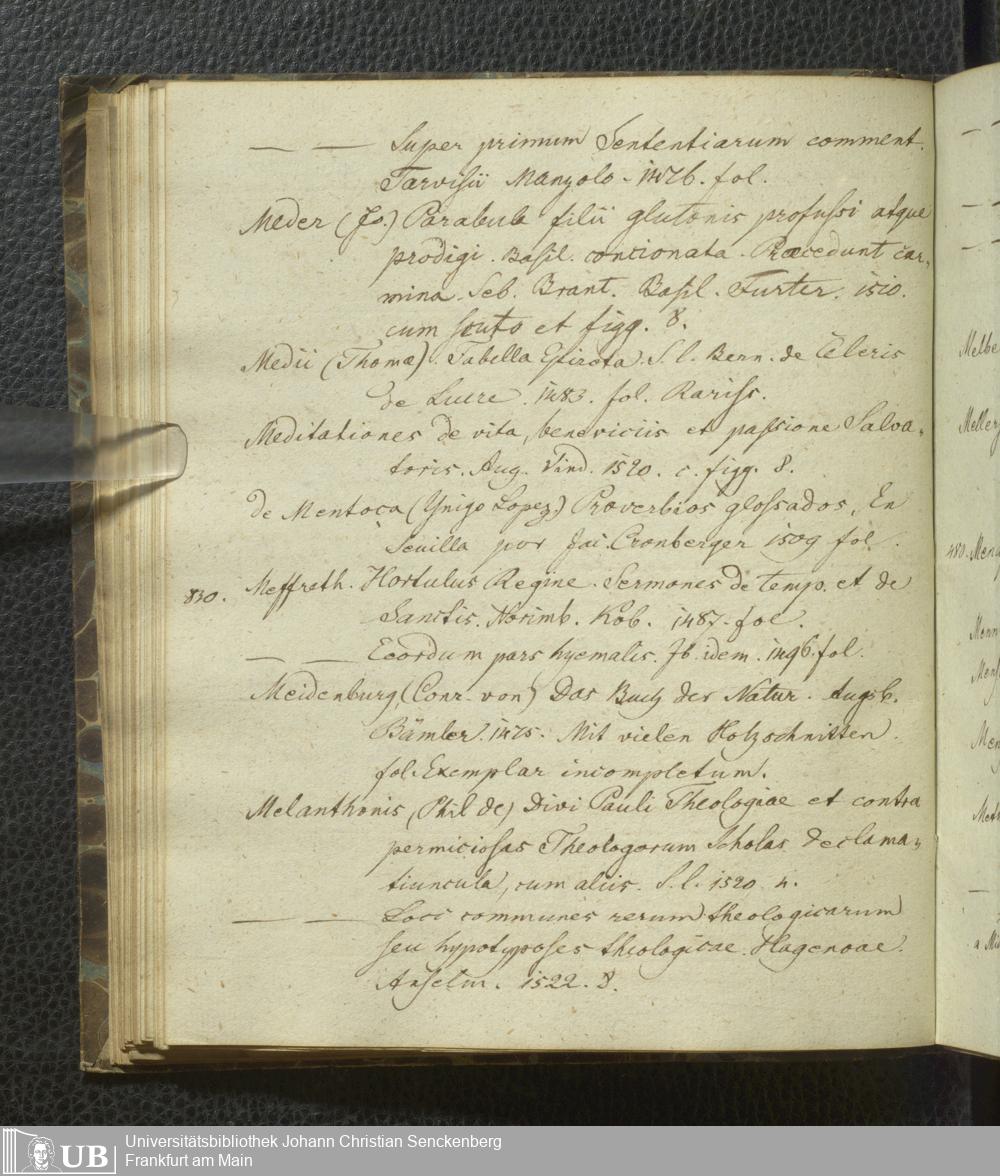 — — Super primum Sententiarum comment.
Tarvisii Manzolo. 1476. fol.
Meder (Jo.) Parabula filii glutonis profussi atque
prodigi. Basil. concionata. Præcedunt car-
mina Seb. Brant. Basil. Furter. 1510.
cum scuto et figg. 8.
Medii (Thomæ) Fabella Epirota. S. l. Bern. de Celeris
de Luere. 1483. fol. Rariss.
Meditationes de vita, beneviciis et passione Salva-
toris. Aug. Vind. 1520. c. figg. 8.
de Mentoca (Ynigo Lopez) Proverbios glossados, En
Sevilla por Jac. Cronberger 1509 fol.
830. Meffreth. Hortulus Regine. Sermones de temp. et de
Sanctis. Norimb. Kob. 1487. fol.
— — Eoordum pars hyemalis. Ib. idem. 1496. fol.
Meidenburg, (Conr. von) Das Buch der Natur. Augsb.
Bämler. 1475. Mit vielen Holzschnitten.
fol. Exemplar incompletum.
Melanthonis, (Phil de) Divi Pauli Theologiae et contra
permiciosas Theologorum Scholas declama-
tiuncula, cum aliis. S. l. 1520. 4.
— — Loci communes rerum theologicarum
seu hypotyposes theologicae. Hagenoae.
Anselm. 1522. 8.
Melbe
Mellerz
480. Men
Menn
Men
Men
Meth
a Mi
UB
Universitätsbibliothek Johann Christian Senckenberg
Frankfurt am Main